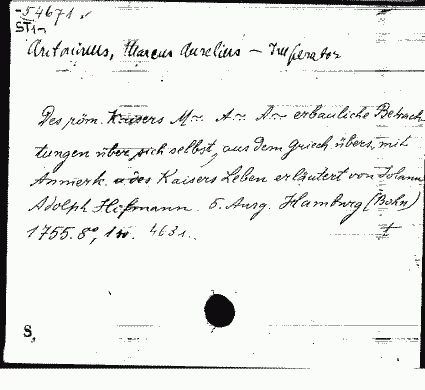 -54671
ST1
Antoninus, Marcus Aurelius - Imperator
Des röm. Kaisers M~ A~ A~ erbauliche Betrach
tungen über sich selbst, aus dem Griech übers, mit
Anmerk. u des Kaisers Leben erläutert von Johann
Adolph Hofmann. 5. Ausg. Hamburg (Bohn)
1755. 8°, 1 w. 4631.
S,